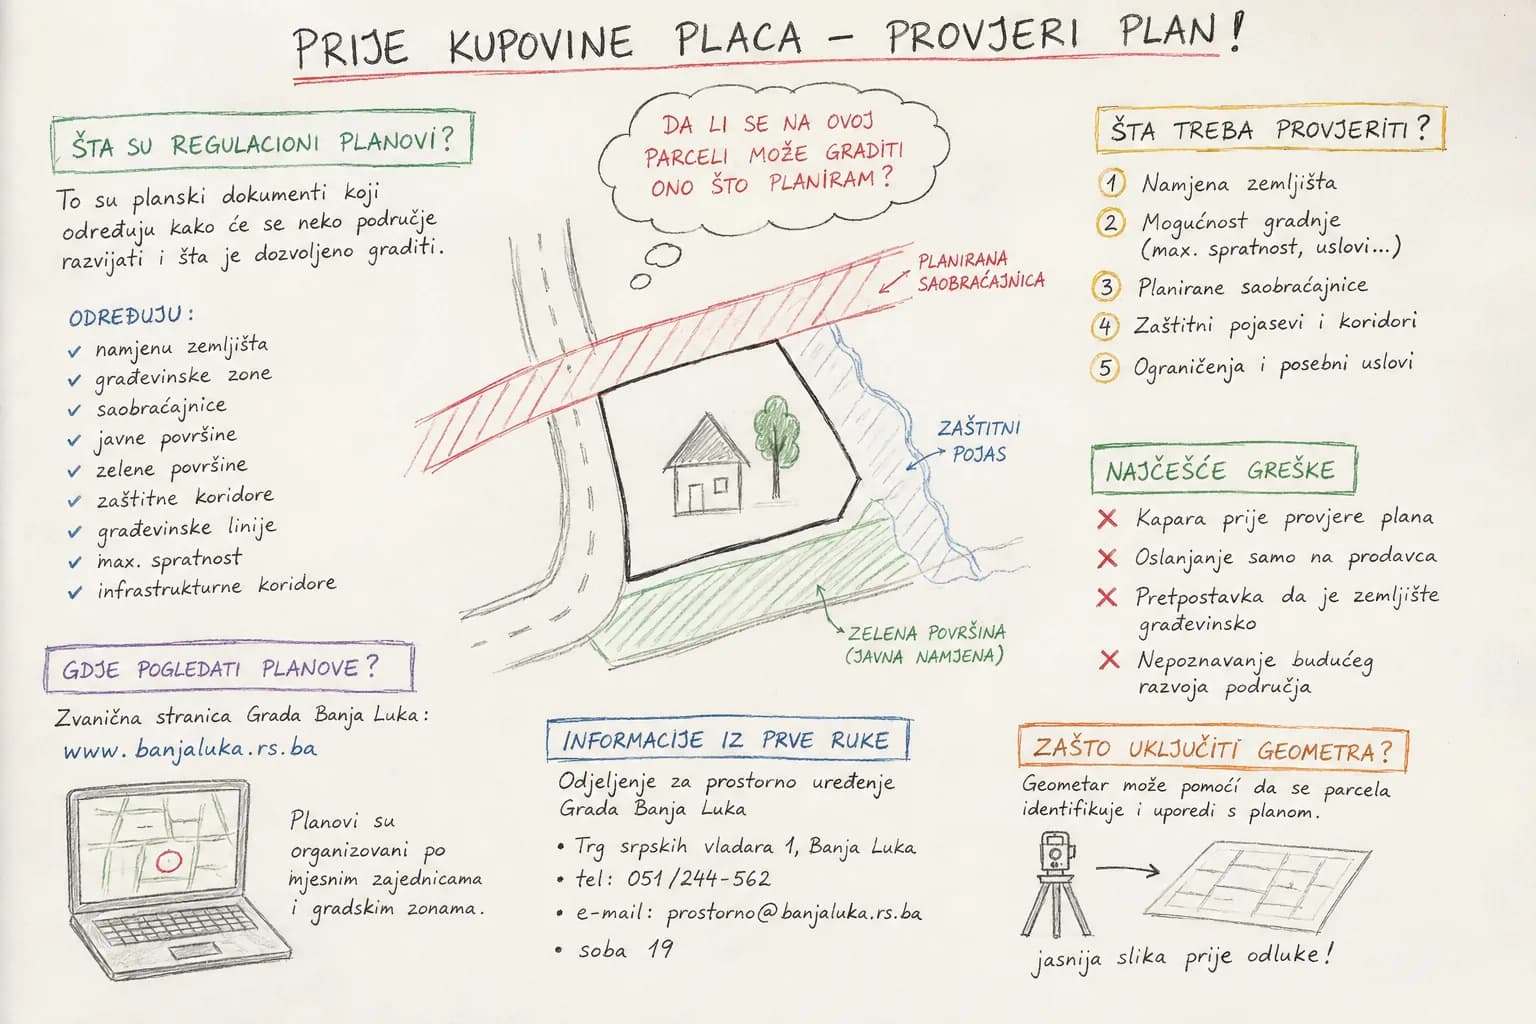 PRIJE KUPOVINE PLACA – PROVJERI PLAN!
ŠTA SU REGULACIONI PLANOVI?
To su planski dokumenti koji
određuju kako će se neko područje
razvijati i šta je dozvoljeno graditi.
ODREĐUJU:
✓ namjenu zemljišta
✓ građevinske zone
✓ saobraćajnice
✓ javne površine
✓ zelene površine
✓ zaštitne koridore
✓ građevinske linije
✓ max. spratnost
✓ infrastrukturne koridore
DA LI SE NA OVOJ
PARCELI MOŽE GRADITI
ONO ŠTO PLANIRAM?
PLANIRANA
SAOBRAĆAJNICA
ZAŠTITNI
POJAS
ZELENA POVRŠINA
(JAVNA NAMJENA)
ŠTA TREBA PROVJERITI?
1 Namjena zemljišta
2 Mogućnost gradnje
(max. spratnost, uslovi...)
3 Planirane saobraćajnice
4 Zaštitni pojasevi i koridori
5 Ograničenja i posebni uslovi
NAJČEŠĆE GREŠKE
✗ Kapara prije provjere plana
✗ Oslanjanje samo na prodavca
✗ Pretpostavka da je zemljište
građevinsko
✗ Nepoznavanje budućeg
razvoja područja
GDJE POGLEDATI PLANOVE?
Zvanična stranica Grada Banja Luka:
www.banjaluka.rs.ba
Planovi su
organizovani po
mjesnim zajednicama
i gradskim zonama.
INFORMACIJE IZ PRVE RUKE
Odjeljenje za prostorno uređenje
Grada Banja Luka
• Trg srpskih vladara 1, Banja Luka
• tel: 051/244-562
• e-mail: prostorno@banjaluka.rs.ba
• soba 19
ZAŠTO UKLJUČITI GEOMETRA?
Geometar može pomoći da se parcela
identifikuje i uporedi s planom.
jasnija slika prije odluke!